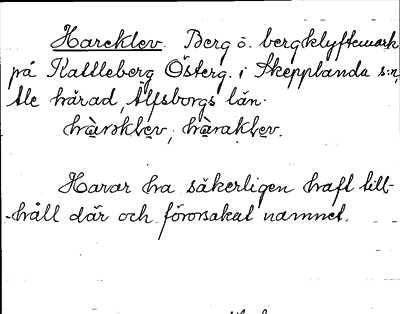 Hareklev. Berg o. bergklyftemark
på Kallleberg Österg. i Skepplanda s:n,
Ale härad, Älfsborgs län.
hàraklev, hàraklev.
Harar ha säkerligen haft till-
håll där och förorsakat namnet.